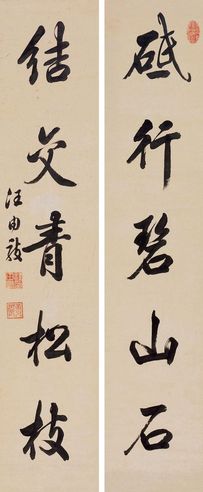 砥行碧山石
结交青松枝
汪由敦